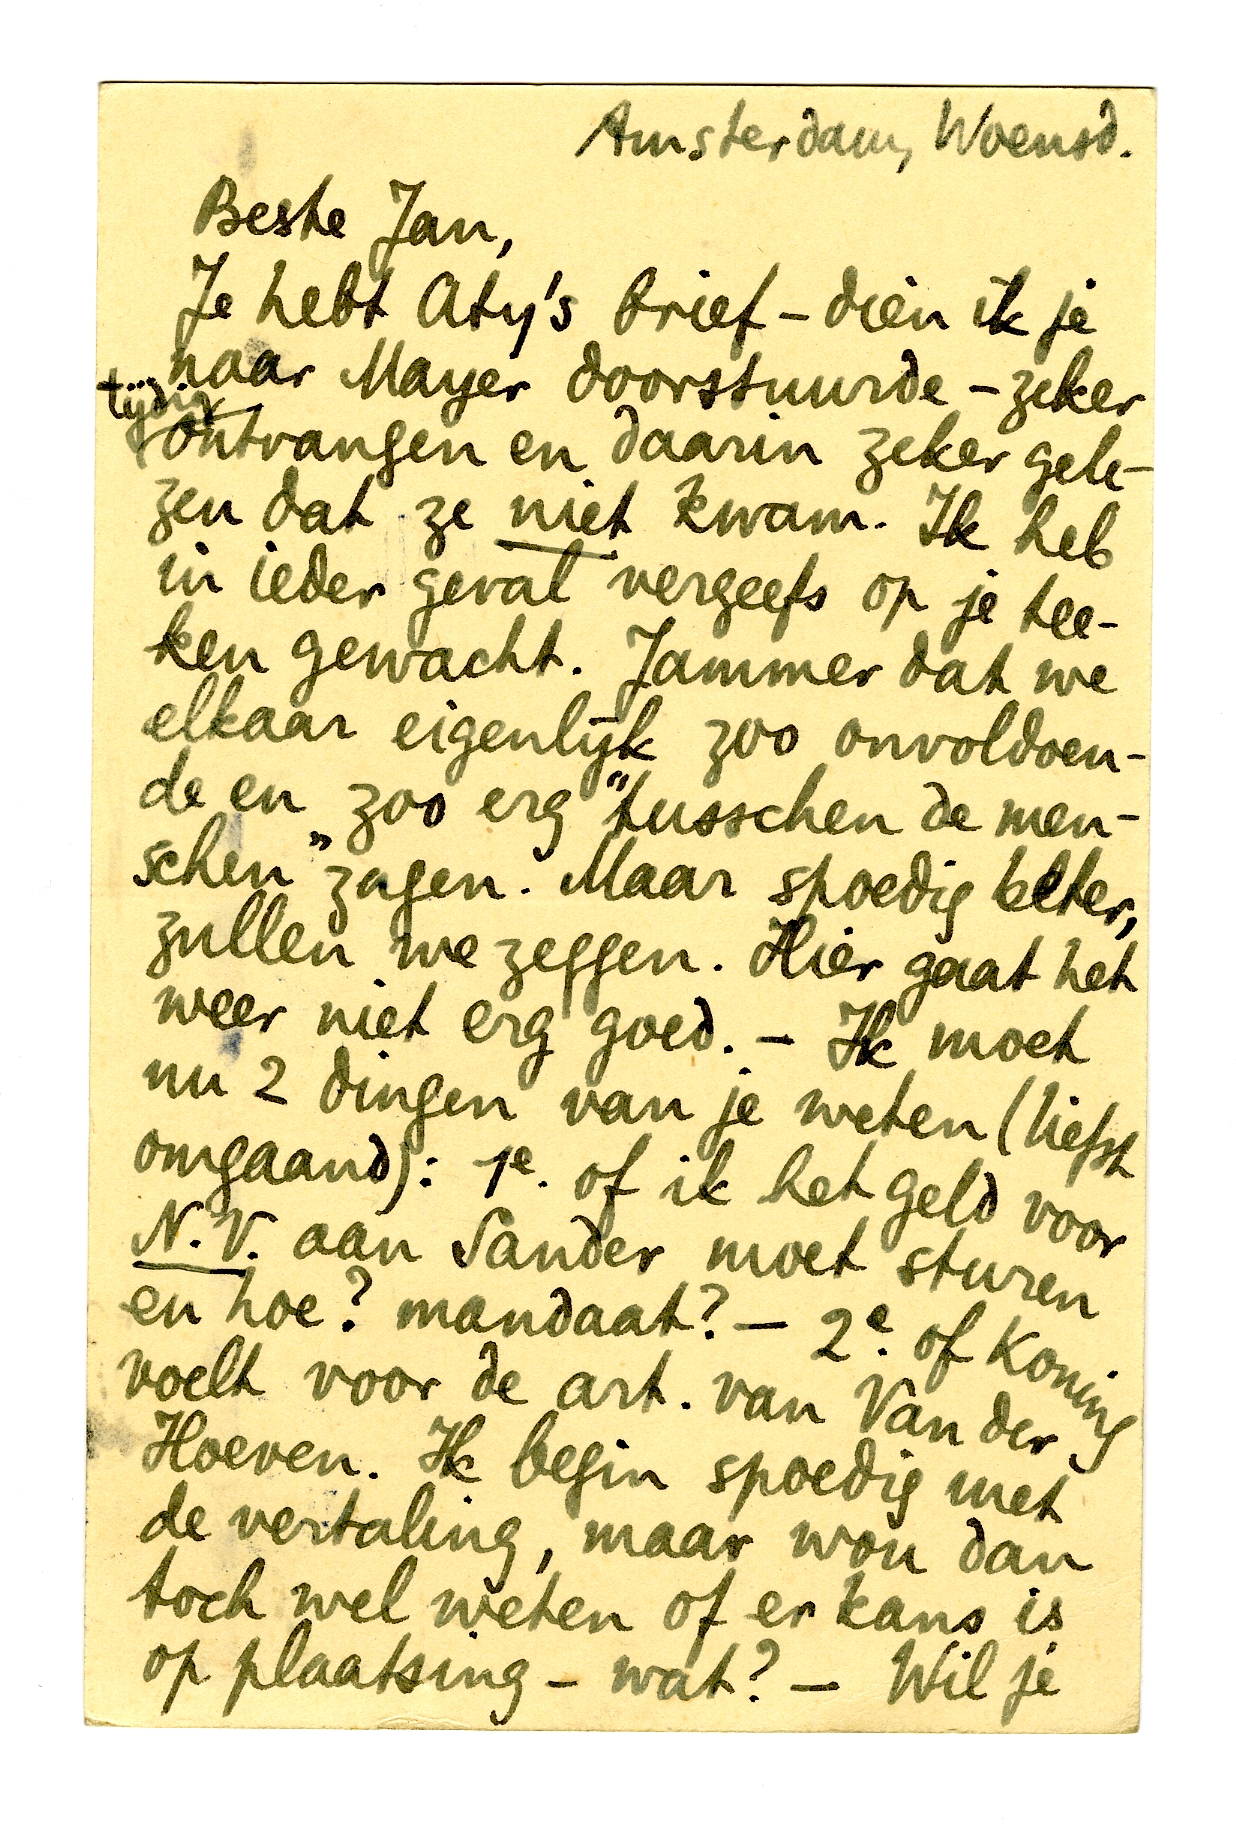 Amsterdam, Woensd.
Beste Jan,
Je hebt Aty's brief – dien ik je
naar Mayer doorstuurde – zeker
tijdig
ontvangen en daarin zeker gele-
zen dat ze niet kwam. Ik heb
in ieder geval vergeefs op je tee-
ken gewacht. Jammer dat we
elkaar eigenlijk zoo onvoldoen-
de en zoo erg "tusschen de men-
schen" zagen. Maar spoedig beter,
zullen we zeggen. Hier gaat het
weer niet erg goed. – Ik moet
nu 2 dingen van je weten (liefst
omgaand): 1e. of ik het geld voor
N.V. aan Sander moet sturen
en hoe? mandaat? – 2e. of Koning
voelt voor de art. van Van der
Hoeven. Ik begin spoedig met
de vertaling, maar wou dan
toch wel weten of er kans is
op plaatsing – wat? – Wil je